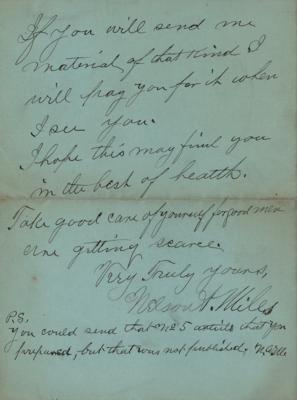 If you will send me
material of that kind I
will pay you for it when
I see you.
I hope this may find you
in the best of health.
Take good care of yourself for good men
are gitting scarce.
Very Truly yours,
Nelson A. Mills
P.S.
you could send that No 5 article that you
prepared, but that was not published.